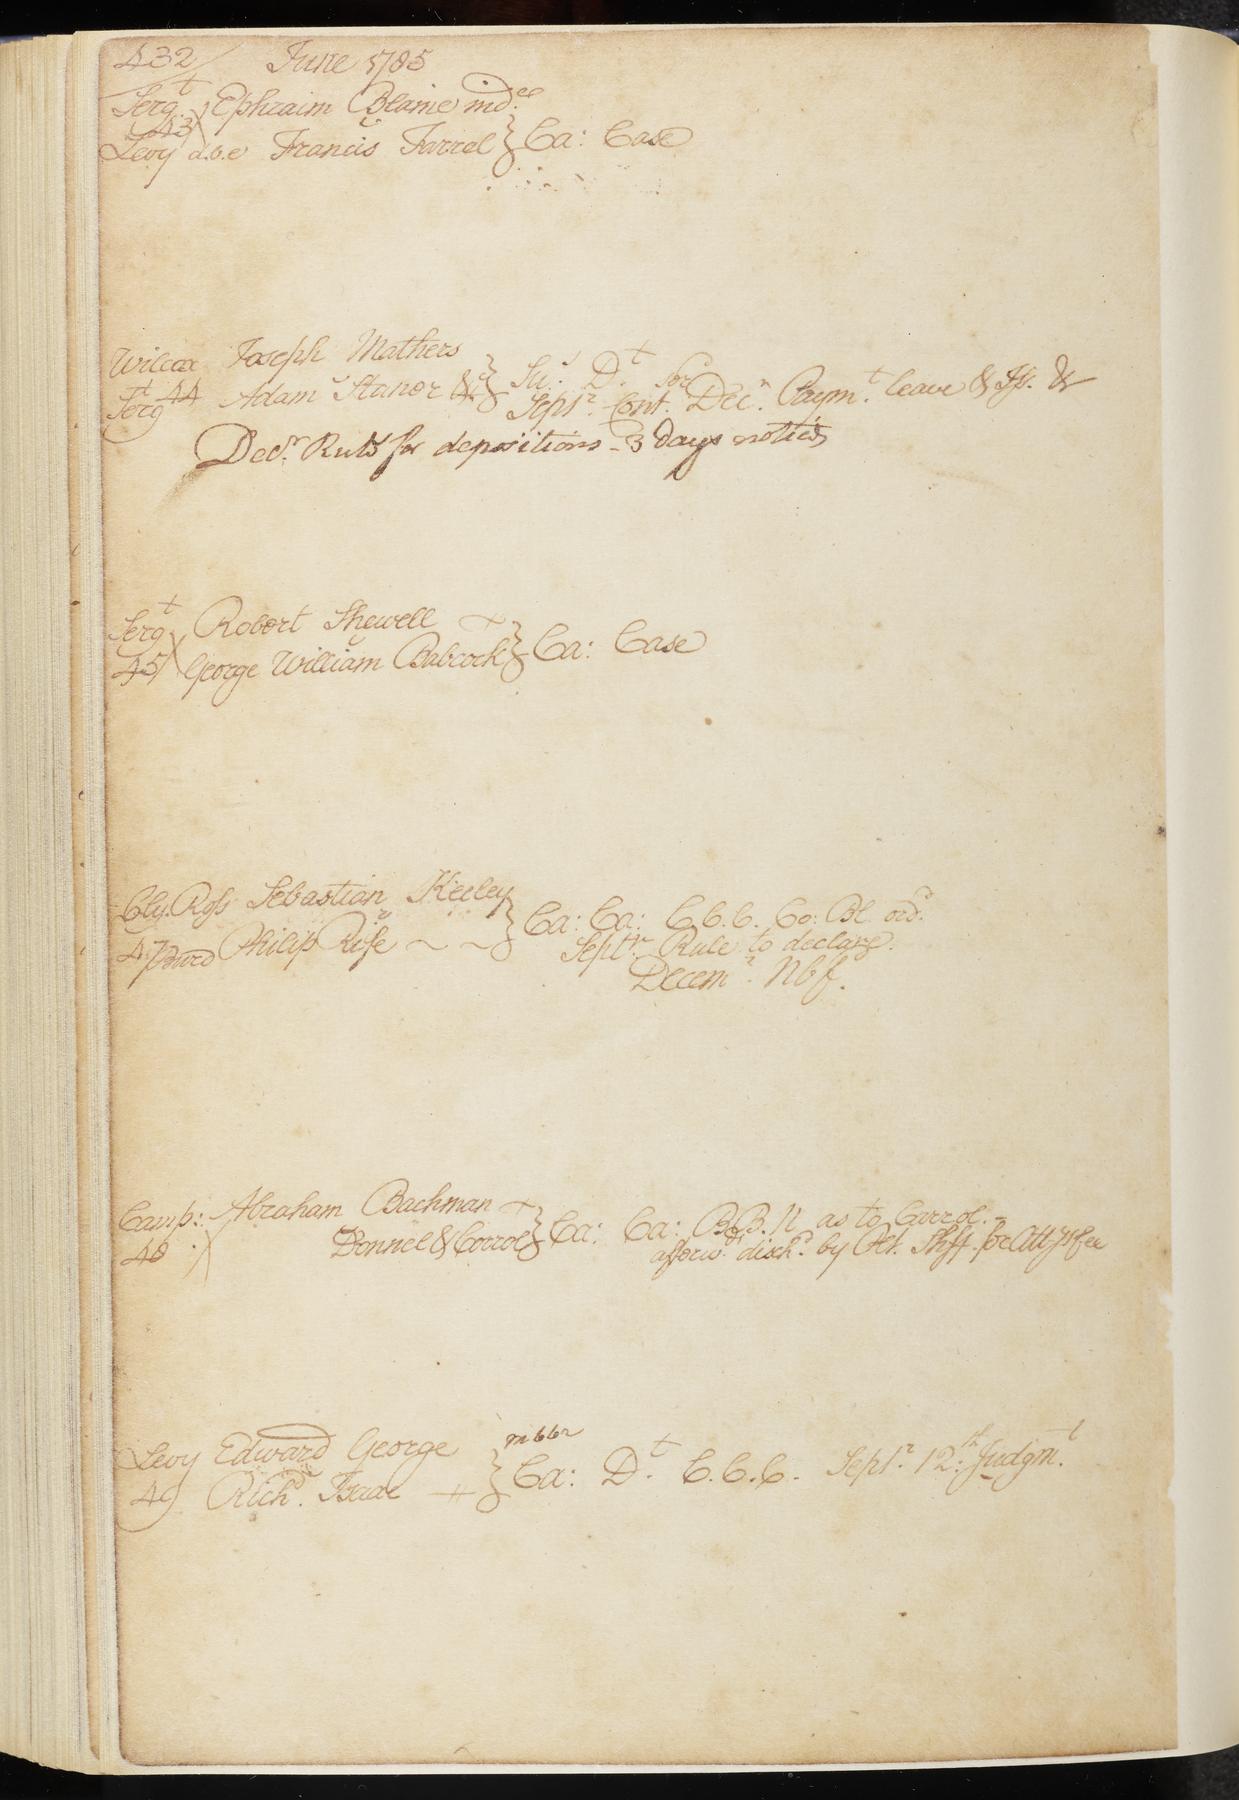 432/ June 1785
Sergt Ephraim Blaine ind.ee
43
Levy d.s.e Francis Farrel } Ca: Case
Wilcox Joseph Mathers
Sergt 44 Adam Stanor &c } Su: Dt. for
Septr. Cont. Decr. Paymt. leave & Iss. &
Decr. Rule for depositions - 3 Days notice
Sergt Robert Shewell
45 George William Babcock } Ca: Case
Cly. Ross Sebastian Keeley
47 Burd Philip Rise } Ca: Ca: C.C.C. Co: Bl. ord.
Septr. Rule to declare.
Decemr. Nbf.
Camp: Abraham Bachman
48 Donnel & Corrol } Ca: Ca: B.B. N as to Carrol.
afterwds. dischd. by Shff. for Attys fee
Levy Edward George
49 Richd. Israel } Ca: Dt. C.C.C. Septr. 12th: Judgmt.